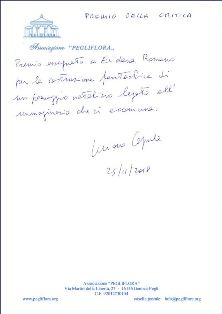 PREMIO DELLA CRITICA
Associazione "PEGLIFLORA"
Premio assegnato a Eudosa Romano
per la costruzione fantastica di
un paesaggio natalizio legato all'
immaginario che ci accomuna.
25/11/2018
Associazione "PEGLIFLORA"
Via Martiri della Libertà, - 16156 Genova Pegli
C.F.
www.pegliflora.org
casella postale: info@pegliflora.org